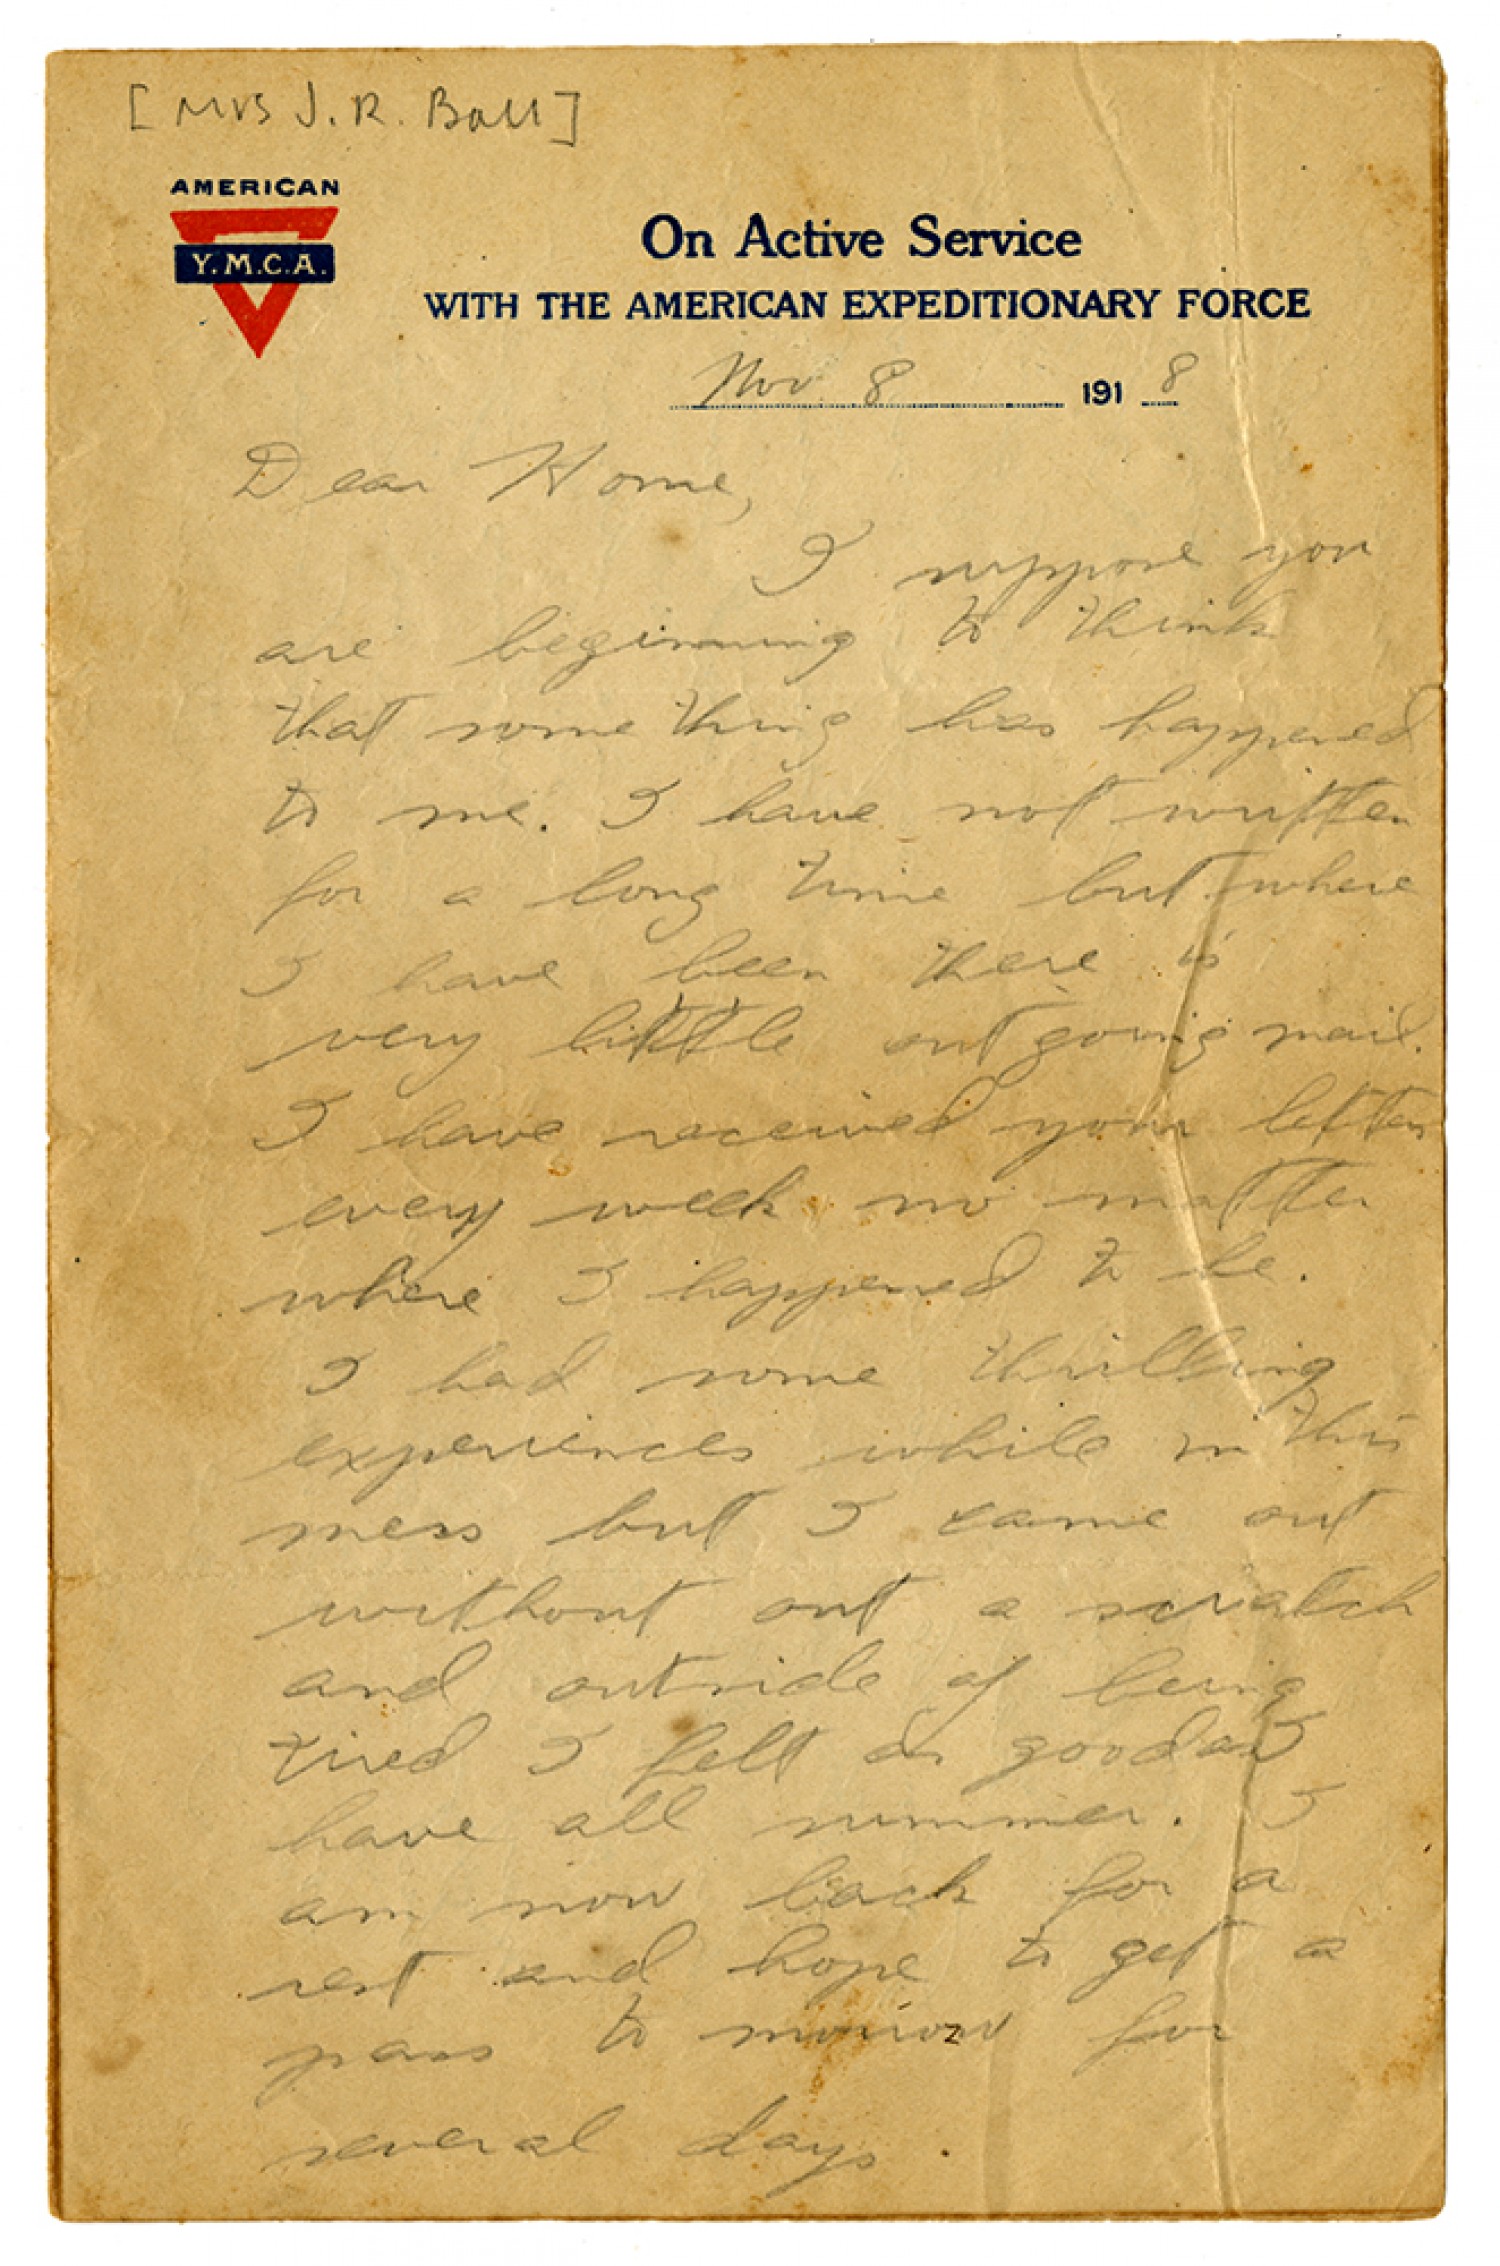 [Mrs J. R. Ball]
AMERICAN
Y.M.C.A.
On Active Service
WITH THE AMERICAN EXPEDITIONARY FORCE
Nov 8 1918
Dear Home,
I suppose you
are beginning to think
that some thing has happened
to me. I have not written
for a long time but where
I have been there is
very little out going mail.
I have received your letters
every week no matter
where I happened to be.
I had some thrilling
experiences while in this
mess but I came out
without out a scratch
and outside of being
tired I felt as good as I
have all summer. I
am now back for a
rest and hope to get a
pass to morrow for
several days.